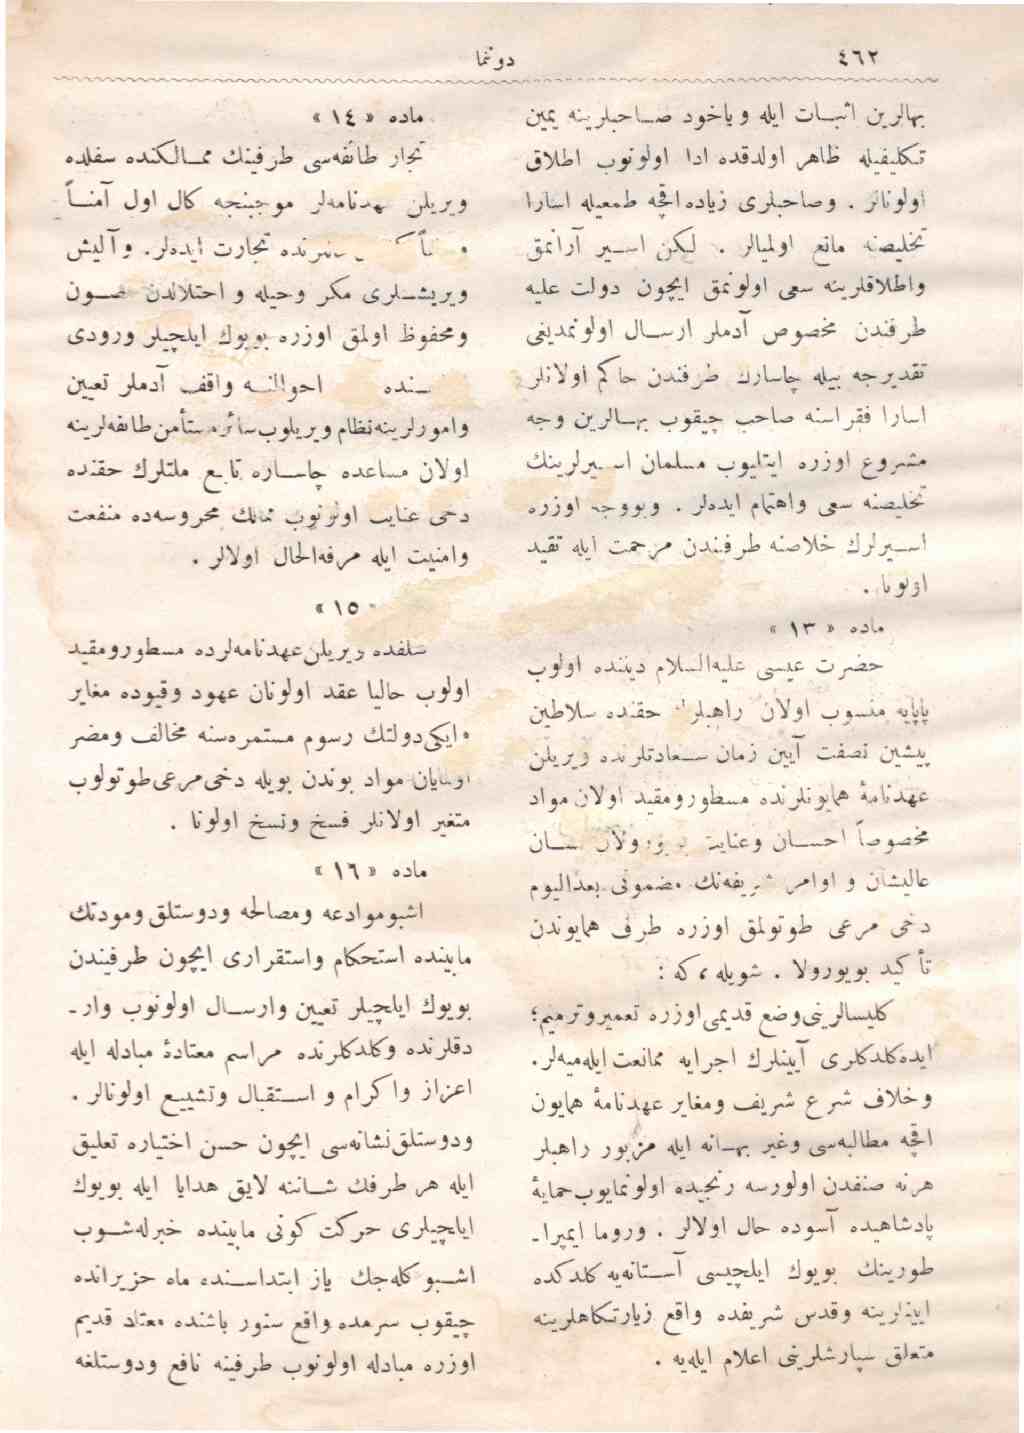 ٤٦٢
دوننما
بهالرین اثبات ایله ویاخود صاحبلرینه یمین
تكلیفیله ظاهر اولدقده ادا اولونوب اطلاق
اولونالر . وصاحبلری زیاده اقچه طمعیله اسارا
تخلیصنه مانع اولمیالر . لیكن اسیر آرانمق
واطلاقلرینه سعی اولونمق ایچون دولت علیه
طرفندن مخصوص آدملر ارسال اولونمدیغی
تقدیرجه بیله چاسارك طرفندن حاكم اولانلر
اسارا فقراسنه صاحب چیقوب بهالرین وجه
مشروع اوزره ایتلیوب مسلمان اسیرلرینك
تخلیصنه سعی واهتمام ایده‌لر . وبووجه اوزره
اسیرلرك خلاصنه طرفیندن مرحمت ایله تقید
اولونا .
ماده « ١٣ »
حضرت عیسی علیه‌السلام دیننده اولوب
پاپایه منسوب اولان راهبلر حقنده سلاطین
پیشین نصفت آیین زمان سعادتلرنده ویریلن
عهدنامۀ همایونلرنده مسطورومقید اولان مواد
مخصوصاً احسان وعنایت
عالیشان و اوامر مضمونی بعدالیوم
دخی مرعی طوتولمق اوزره طرف همایوندن
تأكید بویورولا . شویله ، كه :
كلیسالرینی وضع قدیمی اوزره تعمیروترمیم؛
ایده‌كلدكلری آیینلرك اجرایه ممانعت ایله‌میه‌لر .
وخلاف شرع شریف ومغایر عهدنامۀ همایون
اقچه مطالبه‌سی وغیر بهانه ایله مزبور راهبلر
هرنه صنفدن اولورسه رنجیده اولونمایوب حمایۀ
پادشاهیده آسوده حال اولالر . وروما ایمپرا-
طورینك بویوك ایلچیسی آستانه‌یه كلدكده
آیینلرینه وقدس شریفده واقع زیارتكاهلرینه
متعلق سپارشلرینی اعلام ایله‌یه .
ماده « ١٤ »
تجار طائفه‌سی طرفینك ممالكنده سفلده
ویریلن عهدنامه‌لر موجبنجه كال اول آمناً
تجارت ایده‌لر. وآلیش
ویریشلری مكر وحیله و احتلالدن مصون
ومحفوظ اولمق اوزره بویوك ایلچیلر ورودی
احوالنه واقف آدملر تعیین
وامورلرینه نظام ویریلوب سائرمستأمن طائفه‌لرینه
اولان مساعده چاساره تابع ملتلرك حقنده
دخی عنایت اولونوب ممالك محروسه‌ده منفعت
وامنیت ایله مرفه‌الحال اولالر .
« ١٥ »
سلفده ویریلن عهدنامه‌لرده مسطورومقید
اولوب حالیا عقد اولونان عهود وقیوده مغایر
وایكی دولتك رسوم مستمره‌سنه مخالف ومضر
اولمایان مواد بوندن بویله دخی مرعی طوتولوب
متغیر اولانلر فسخ ونسخ اولونا .
ماده « ١٦ »
اشبوموادعه ومصالحه ودوستلق ومودتك
مابینده استحكام واستقراری ایچون طرفیندن
بویوك ایلچیلر تعیین وارسال اولونوب وار-
دقلرنده وكلدكلرنده مراسم معتادۀ مبادله ایله
اعزاز واكرام و استقبال وتشییع اولونالر .
ودوستلق نشانه‌سی ایچون حسن اختیاره تعلیق
ایله هر طرفك شاننه لایق هدایا ایله بویوك
ایلچیلری حركت كونی مابینده خبرله‌شوب
اشبو كله‌جك یاز ابتداسنده ماه حزیرانده
چیقوب سرمده واقع سنور باشنده معتاد قدیم
اوزره مبادله اولونوب طرفینه نافع ودوستلغه